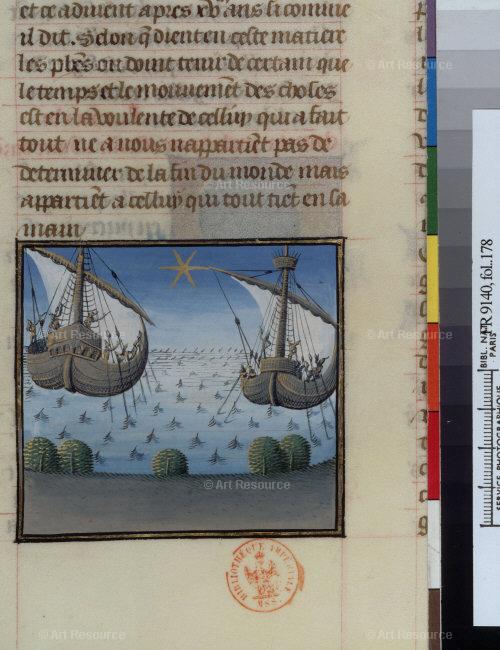 et ce aduient apres xv. ans si comme
il dit. Selon q̄ dient en ceste matiere
les pl̄rs on doint tenir de certain que
le temps et le mouuemēt des choses
est en la voulente de celluy qui a fait
tout ne a nous nappartiēt pas de
determiner de la fin du monde mais
appartiēt a celluy qui tout tiēt en sa
main
BIBL. NAT.
PARIS
FR 9140, fol.178
SERVICE PHOTOGRAPHIQUE
BIBLIOTHÈQUE IMPERIALE
MSS.
© Art Resource
© Art Resource
© Art Resource
© Art Resource
© Art Resource
© Art Resource
© Art Resource
© Art Resource
© Art Resource